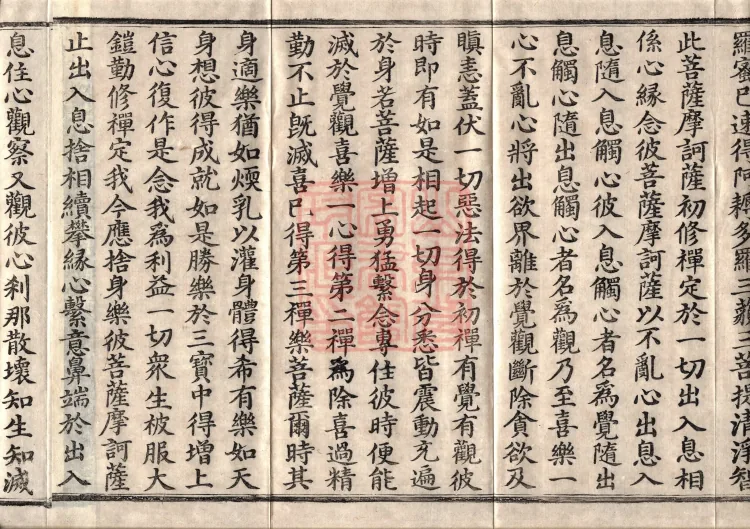 羅蜜已達得阿耨多羅三藐三菩提清淨智
此菩薩摩訶薩初修禪定於一切出入息相
係心緣念彼菩薩摩訶薩以不亂心出息入
息隨入息觸心彼入息觸心者名為覺隨出
息觸心隨出息觸心者名爲觀乃至喜樂一
心不亂心將出欲界離於覺觀斷除貪欲及
瞋恚蓋伏一切惡法得於初禪有覺有觀彼
時即有如是相起一切身分悉皆震動充遍
於身若菩薩增上勇猛繫念專住彼時便能
滅於覺觀喜樂一心得第二禪爲除喜過精
勤不止旣滅喜已得第三禪樂菩薩爾時其
身適樂猶如煗乳以灌身體得希有樂如天
身想彼得成就如是勝樂於三寶中得增上
信心復作是念我爲利益一切衆生被服大
鎧勤修禪定我今應捨身樂彼菩薩摩訶薩
止出入息捨相續攀緣心繫意鼻端於出入
息住心觀察又觀彼心刹那散壞知生知滅